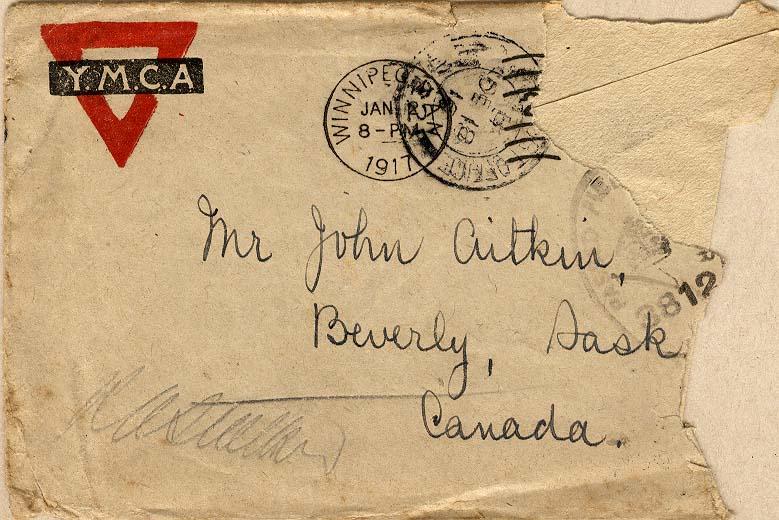 Y.M.C.A
WINNIPEG
JAN
8-PM
1917
OFFICE
Mr John Aitkin,
Beverly, Sask
Canada.
PAS
3812